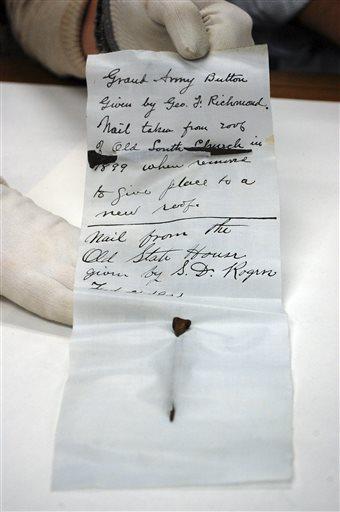 Grand Army Button
Given by Geo. F. Richmond.
Nail taken from roof
of Old South Church in
1899 when remove
to give place to a
new roof.
Nail from the
Old State House
given by S. D. Rogers